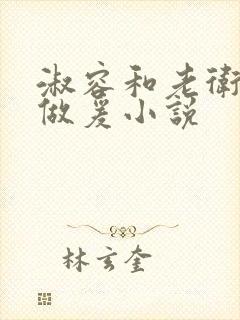 淑容和老衛
做爰小説
林玄奎